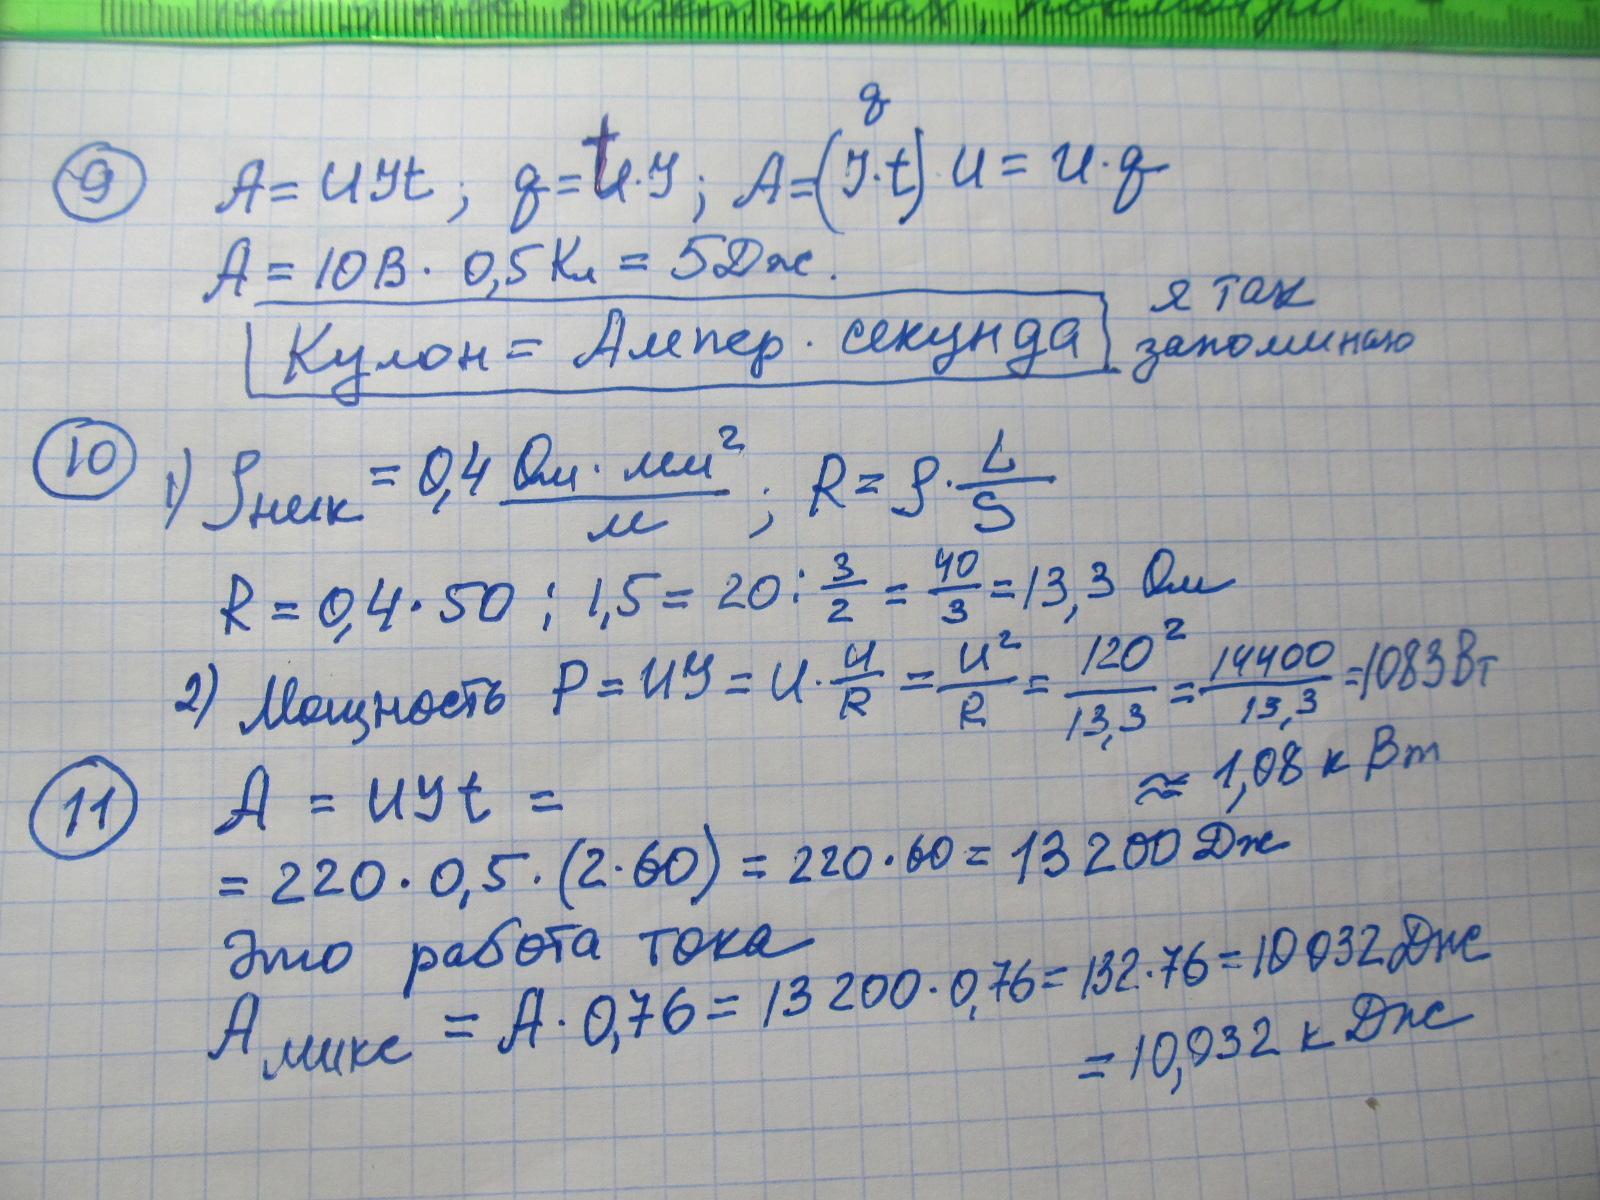 в счётчиках, посмотри
9 A = UIt ; q = t·I ; A = (I·t)·U = U·q
q
A = 10В · 0,5 Кл = 5Дж.
Кулон = Ампер · секунда
я так
запоминаю
10 1) ρник = 0,4 Ом·мм²/м ; R = ρ · L/S
R = 0,4 · 50 : 1,5 = 20 : 3/2 = 40/3 = 13,3 Ом
2) Мощность P = UI = U · U/R = U²/R = 120²/13,3 = 14400/13,3 = 1083Вт
≈ 1,08 кВт
11 A = UIt =
= 220 · 0,5 · (2·60) = 220·60 = 13200 Дж
Это работа тока
Aмикс = A · 0,76 = 13200 · 0,76 = 132·76 = 10032 Дж
= 10,032 кДж